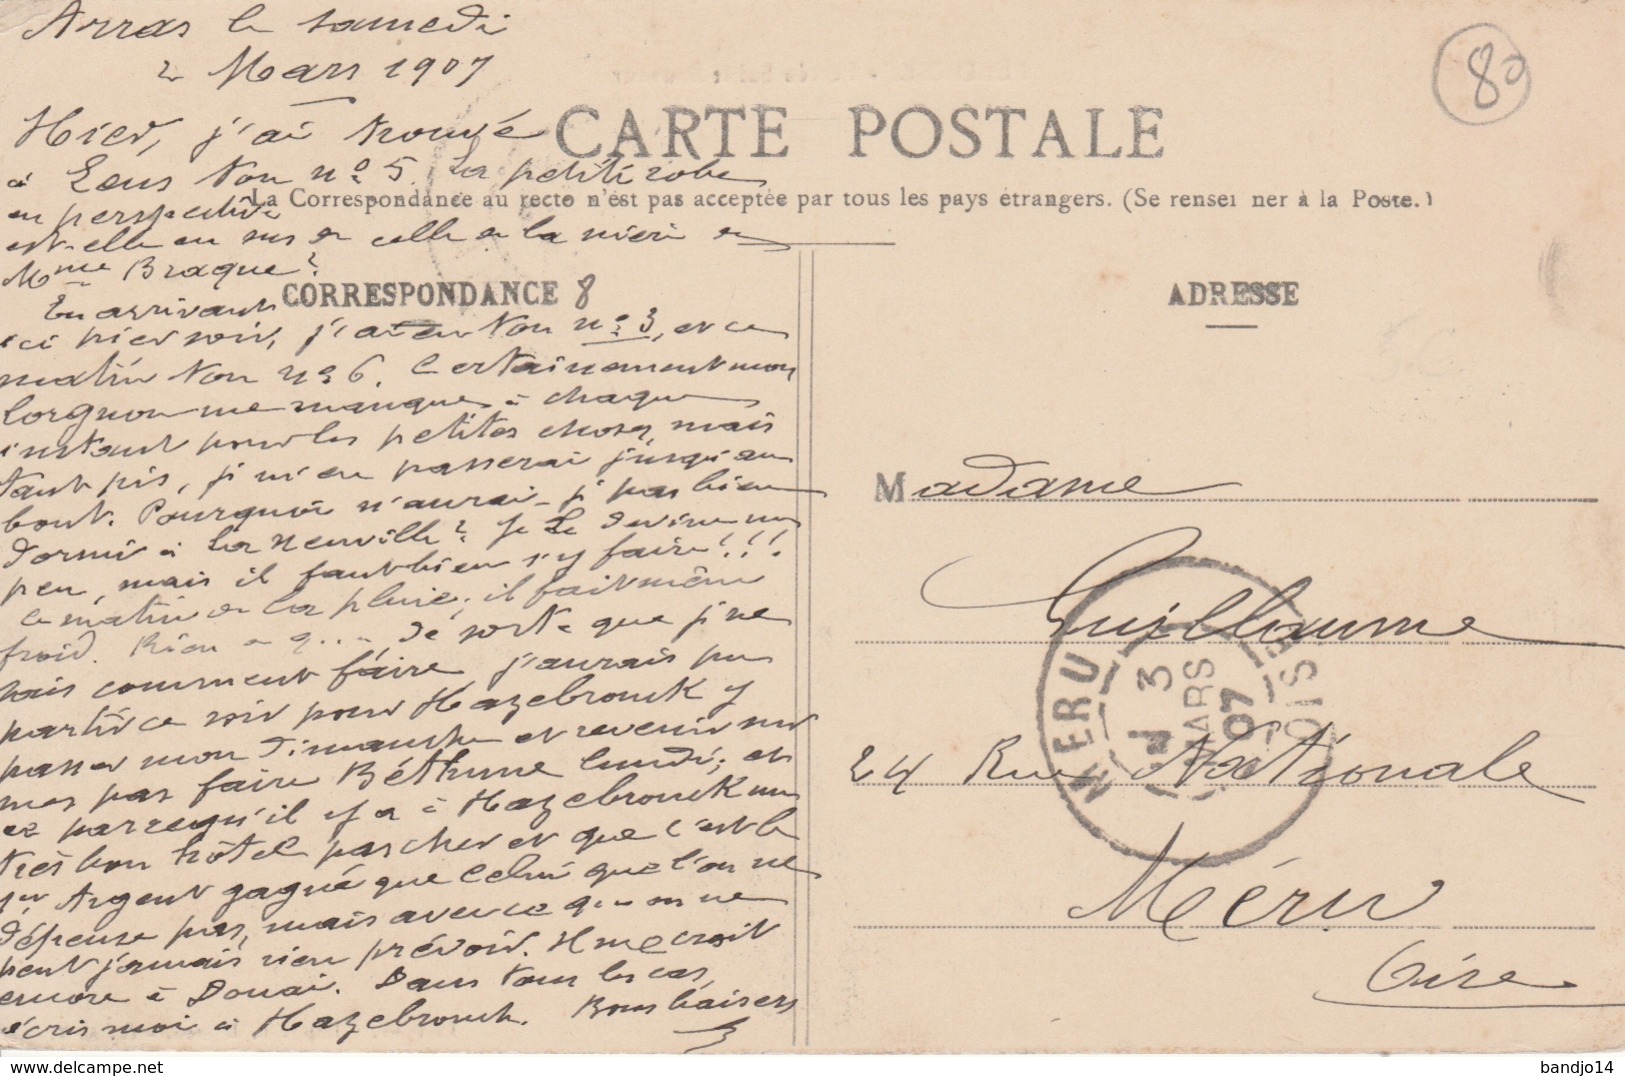 Arras le samedi
2 Mars 1907
80
Hier, j'ai trouvé
CARTE POSTALE
à Lens ton nº 5. La petite robe
La Correspondance au recto n'est pas acceptée par tous les pays étrangers. (Se rensei ner à la Poste.)
en perspective
est-elle en sus de celle de la nièce de
Mme Braque?
CORRESPONDANCE 8
ADRESSE
En arrivant
ici hier soir, j'ai eu ton nº 3, et ce
matin ton nº 6. Certainement mon
lorgnon me manque à chaque
instant pour les petites choses, mais
tant pis, je m'en passerai jusqu'au
bout. Pourquoi n'aurai-je pas bien
dormi à La Neuville? Je le devine un
peu, mais il faut bien s'y faire!!!
Ce matin de la pluie; il fait même
froid. Rien de q... De sorte que je ne
sais comment faire j'aurais pu
partir ce soir pour Hazebrouck y
passer mon dimanche et revenir sur
mes pas faire Béthune lundi; et
ce parce qu'il y a à Hazebrouck un
très bon hôtel pas cher et que c'est le
1er Argent gagné que celui que l'on ne
dépense pas, mais avec ce que on ne
peut jamais rien prévoir. H me croit
encore à Douai. Dans tous les cas,
écris moi à Hazebrouck. Bons baisers
Madame
Guillaume
24 Rue Nationale
Méru
Oise
MERU
3
MARS
07
OISE
bandjo14